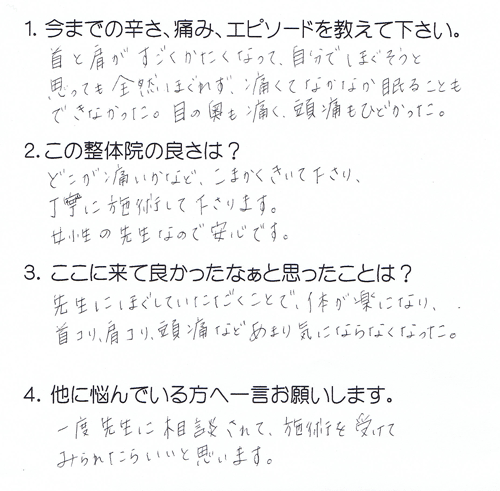 1. 今までの辛さ、痛み、エピソードを教えて下さい。
首と肩がすごくかたくなって、自分でほぐそうと
思っても全然ほぐれず、痛くてなかなか眠ることも
できなかった。目の奥も痛く、頭痛もひどかった。
2.この整体院の良さは？
どこが痛いかなど、こまかくきいて下さり、
丁寧に施術して下さります。
女性の先生なので安心です。
3. ここに来て良かったなぁと思ったことは？
先生にほぐしていただくことで、体が楽になり、
首コリ、肩コリ、頭痛などあまり気にならなくなった。
4. 他に悩んでいる方へ一言お願いします。
一度先生に相談されて、施術を受けて
みられたらいいと思います。